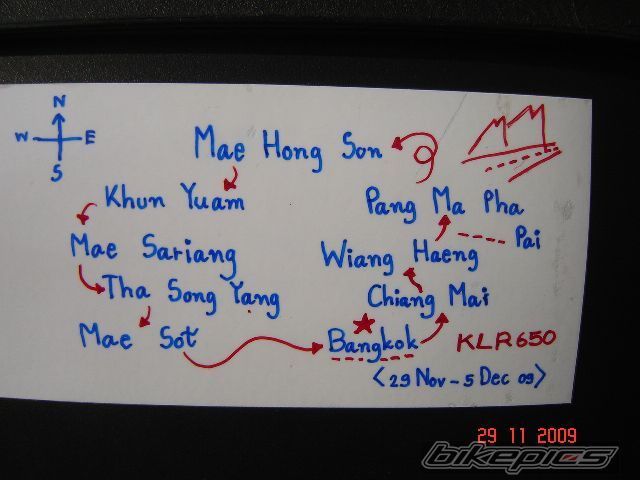 N
W E
S
Mae Hong Son
Khun Yuam
Pang Ma Pha
Pai
Mae Sariang
Wiang Haeng
Tha Song Yang
Chiang Mai
Mae Sot
Bangkok
KLR650
<29 Nov - 5 Dec 09>
29 11 2009
bikepics